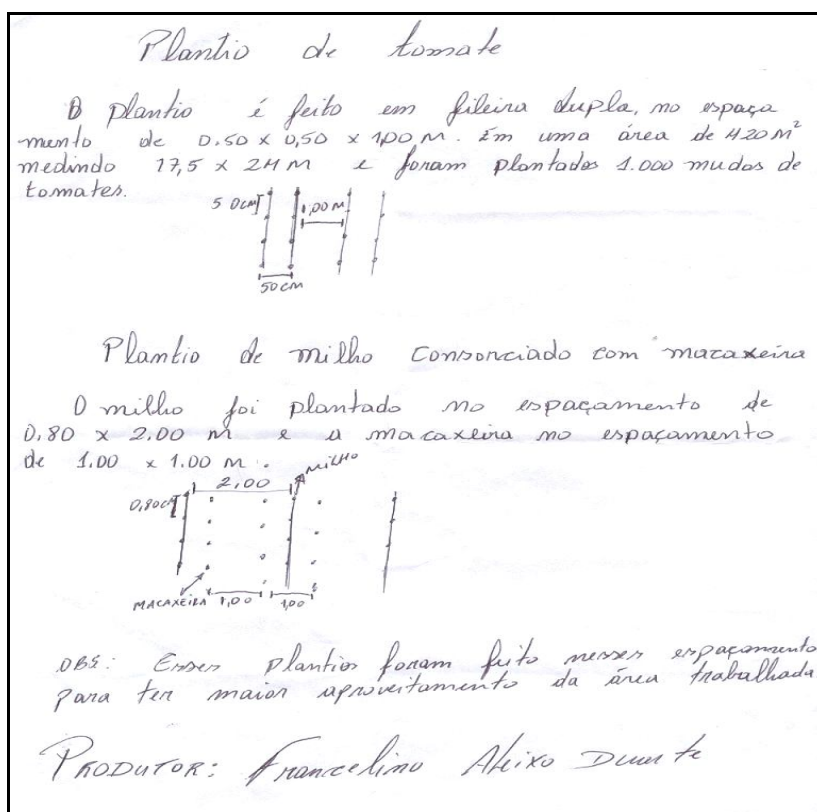 Plantio de tomate
O plantio é feito em fileira dupla, no espaça
mento de 0.50 x 0,50 x 1,00 M. Em uma área de 420 M²
medindo 17,5 x 24 M e foram plantados 1.000 mudas de
tomates.
50cm 1,00 M
50 cm
Plantio de milho consorciado com macaxeira
O milho foi plantado no espaçamento de
0.80 x 2.00 m e a macaxeira no espaçamento
de 1.00 x 1.00 m.
MILHO
2,00
0,80cm
MACAXEIRA 1,00 1,00
OBS: Esses plantios foram feito nesses espaçamento
para ter maior aproveitamento da área trabalhada
PRODUTOR: Francelino Aleixo Duarte